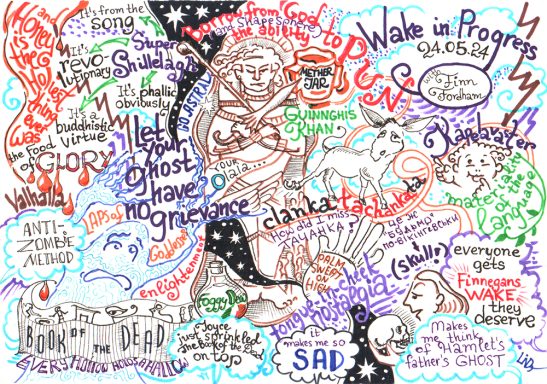 Honey
is the
Holiest
thing
ever
was
the Food
of
GLORY
Valhalla
It's from the
song
It's
revo-
lutionary
Super
Shillelagh
It's phallic
obviously
It's a
buddhistic
virtue
GO ASTRAL
Borrow from God
and Shapesphere
the ability
to
PUN
METHER
JAR
Wake in Progress
24.05.24
with
Finn
Fordham
GUINNGHIS
KHAN
Let
your
Ghost
have
no grievance
OUR
olala...
Kapda
water
mater
larity
of the
language
clanka
tachanka
ta
How did I miss
ТАЧАНКА?
ANTI-
ZOMBIE
METHOD
LAPS of
Goddesses
enlightenment
це ж
PALM
SWEPT
on
HIGH
(skull?)
everyone
gets
Finnegans
WAKE
they
deserve
tongue-in-cheek
nostalgia
Foggy Dead
BOOK OF THE DEAD
EVERY HOLLOW HOLDS A HALLOW
Joyce
just sprinkled
the Book of the Dead
on top
it
makes me so
SAD
Makes
me think
of Hamlet's
father's GHOST